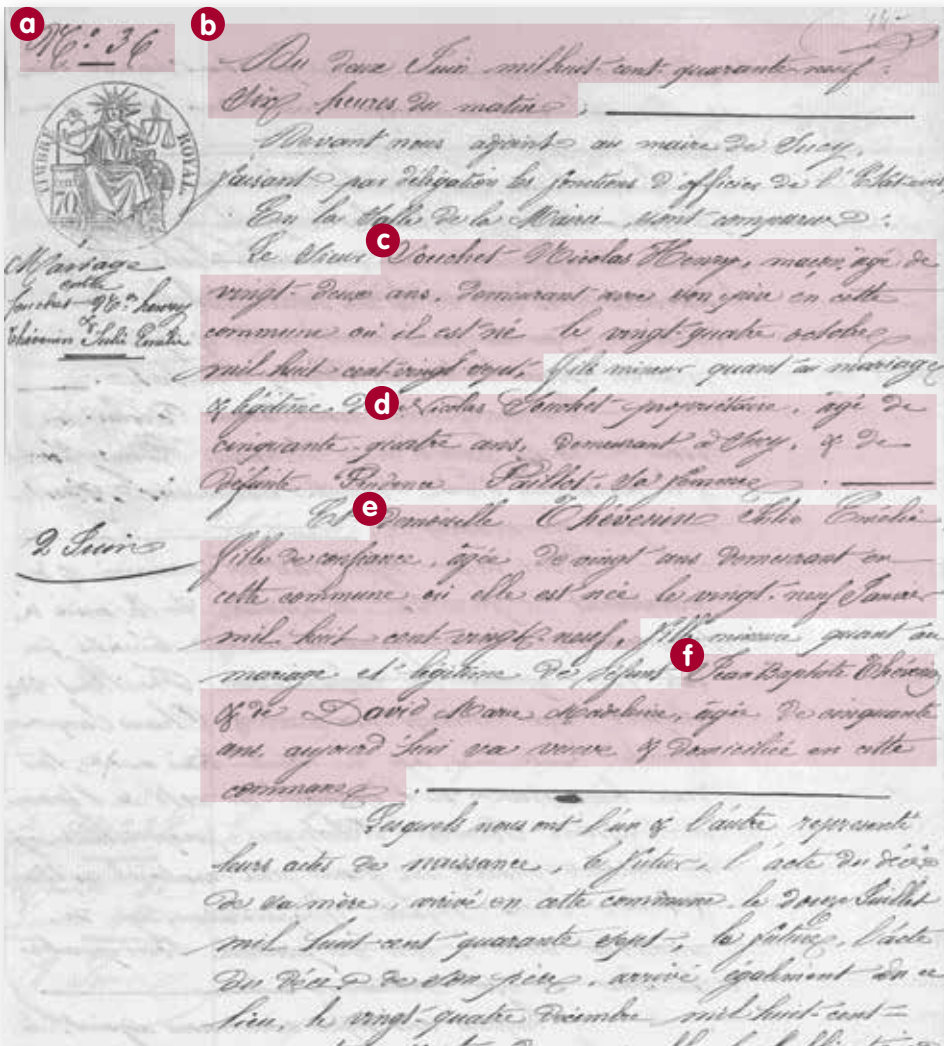 a
N.° 36
b
Du deux Juin mil huit cent quarante neuf
dix heures du matin.
Devant nous adjoint au maire de Sucy,
faisant par délégation les fonctions d'officier de l'Etat-civil
En la Salle de la Mairie, sont comparus :
TIMBRE ROYAL
70
c
Le Sieur Souchet Nicolas Henry, maçon, âgé de
vingt-deux ans, demeurant avec son père en cette
commune où il est né le vingt-quatre octobre
mil huit cent vingt sept, fils mineur quant au mariage
Mariage
entre
Souchet N.as henry
& Thévenin Julie Emélie
d
& légitime de Nicolas Souchet propriétaire, âgé de
cinquante-quatre ans, demeurant à Sucy, & de
défunte Prudence Paillot, sa femme
e
Et demoiselle Thévenin Julie Emélie
fille de confiance, âgée de vingt ans demeurant en
cette commune où elle est née le vingt-neuf Janvier
mil huit cent vingt neuf, fille mineure quant au
2 Juin
f
mariage et légitime de défunt Jean Baptiste Thévenin
& de David Marie Madeleine, âgée de cinquante
ans, aujourd'hui sa veuve & domiciliée en cette
commune.
Lesquels nous ont l'un & l'autre représenté
leurs actes de naissance, le futur, l'acte du décès
de sa mère, arrivé en cette commune le douze Juillet
mil huit cent quarante sept, la future, l'acte
du décès de son père, arrivé également en ce
lieu, le vingt-quatre Décembre mil huit-cent-